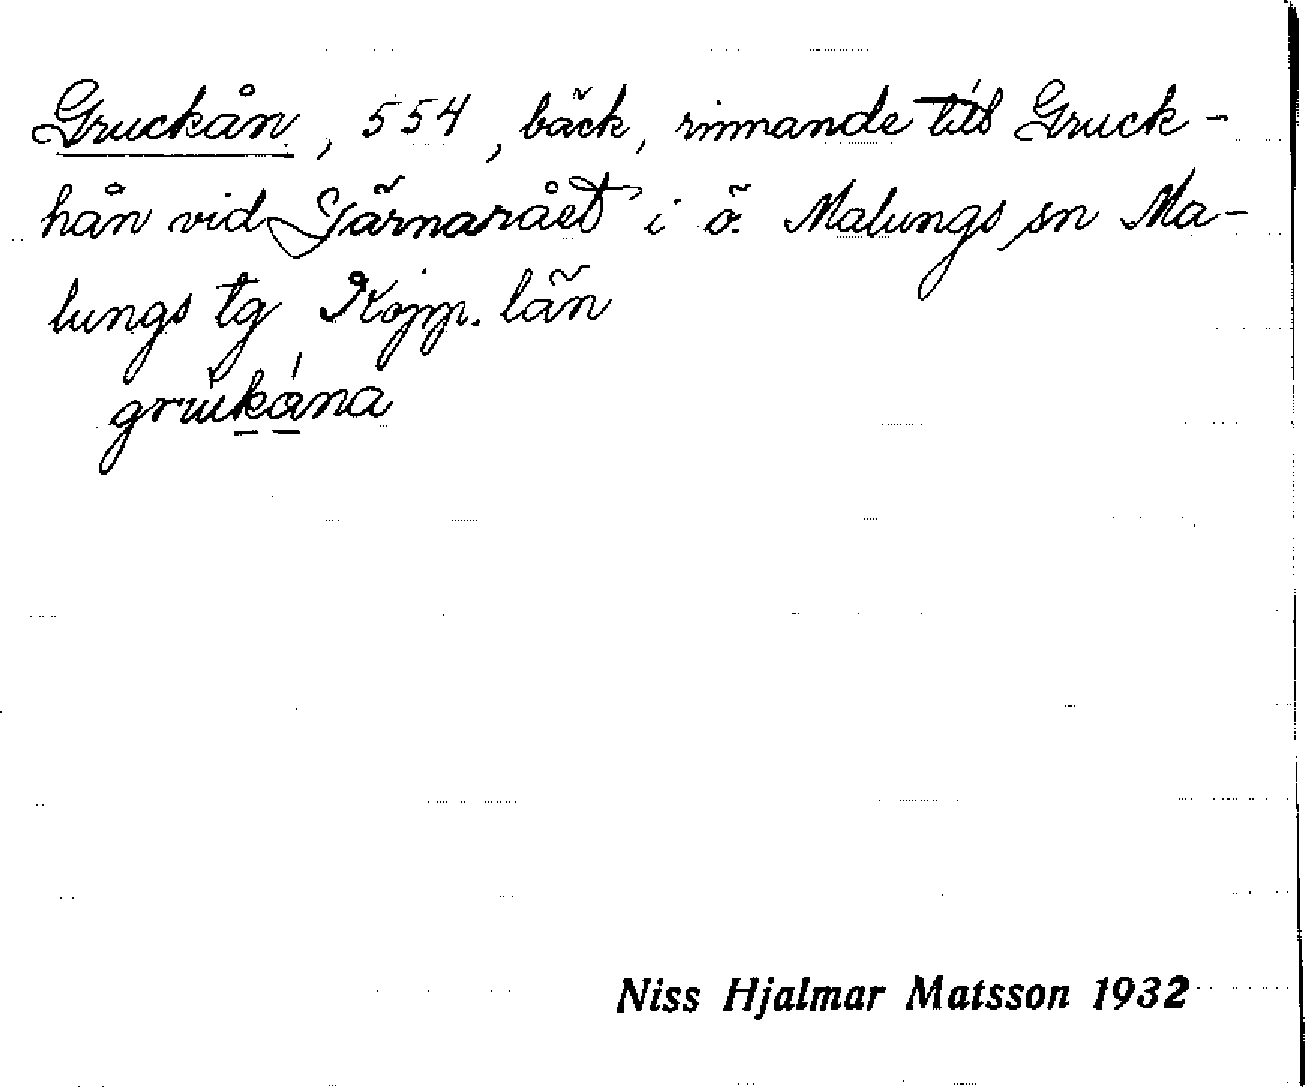 Gruckån, 554, bäck, rinnande till Gruck-
hån vid Järnarået i ö. Malungs sn Ma-
lungs tg Kopp. län
grukána
Niss Hjalmar Matsson 1932